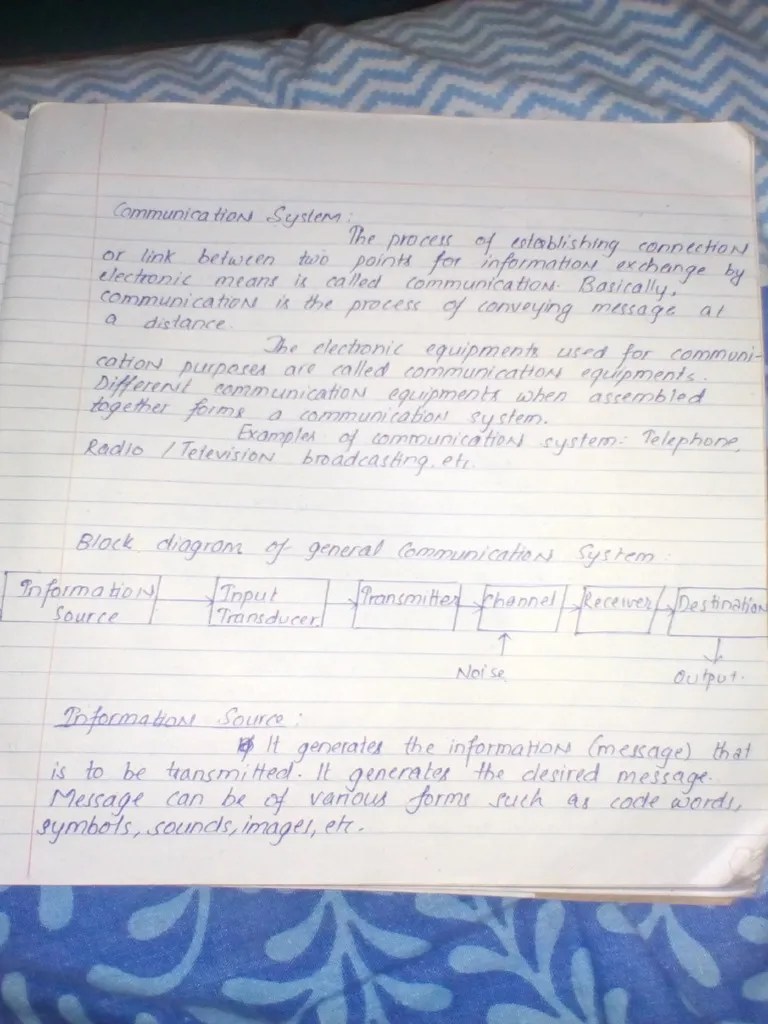 Communication System:
The process of establishing connection
or link between two points for information exchange by
electronic means is called communication. Basically,
communication is the process of conveying message at
a distance.
The electronic equipments used for communi-
cation purposes are called communication equipments.
Different communication equipments when assembled
together forms a communication system.
Examples of communication system: Telephone,
Radio / Television broadcasting, etc.
Block diagram of general Communication System:
Information Source Input Transducer Transmitter Channel Receiver Destination
Noise Output.
Information Source:
It generates the information (message) that
is to be transmitted. It generates the desired message.
Message can be of various forms such as code words,
symbols, sounds, images, etc.